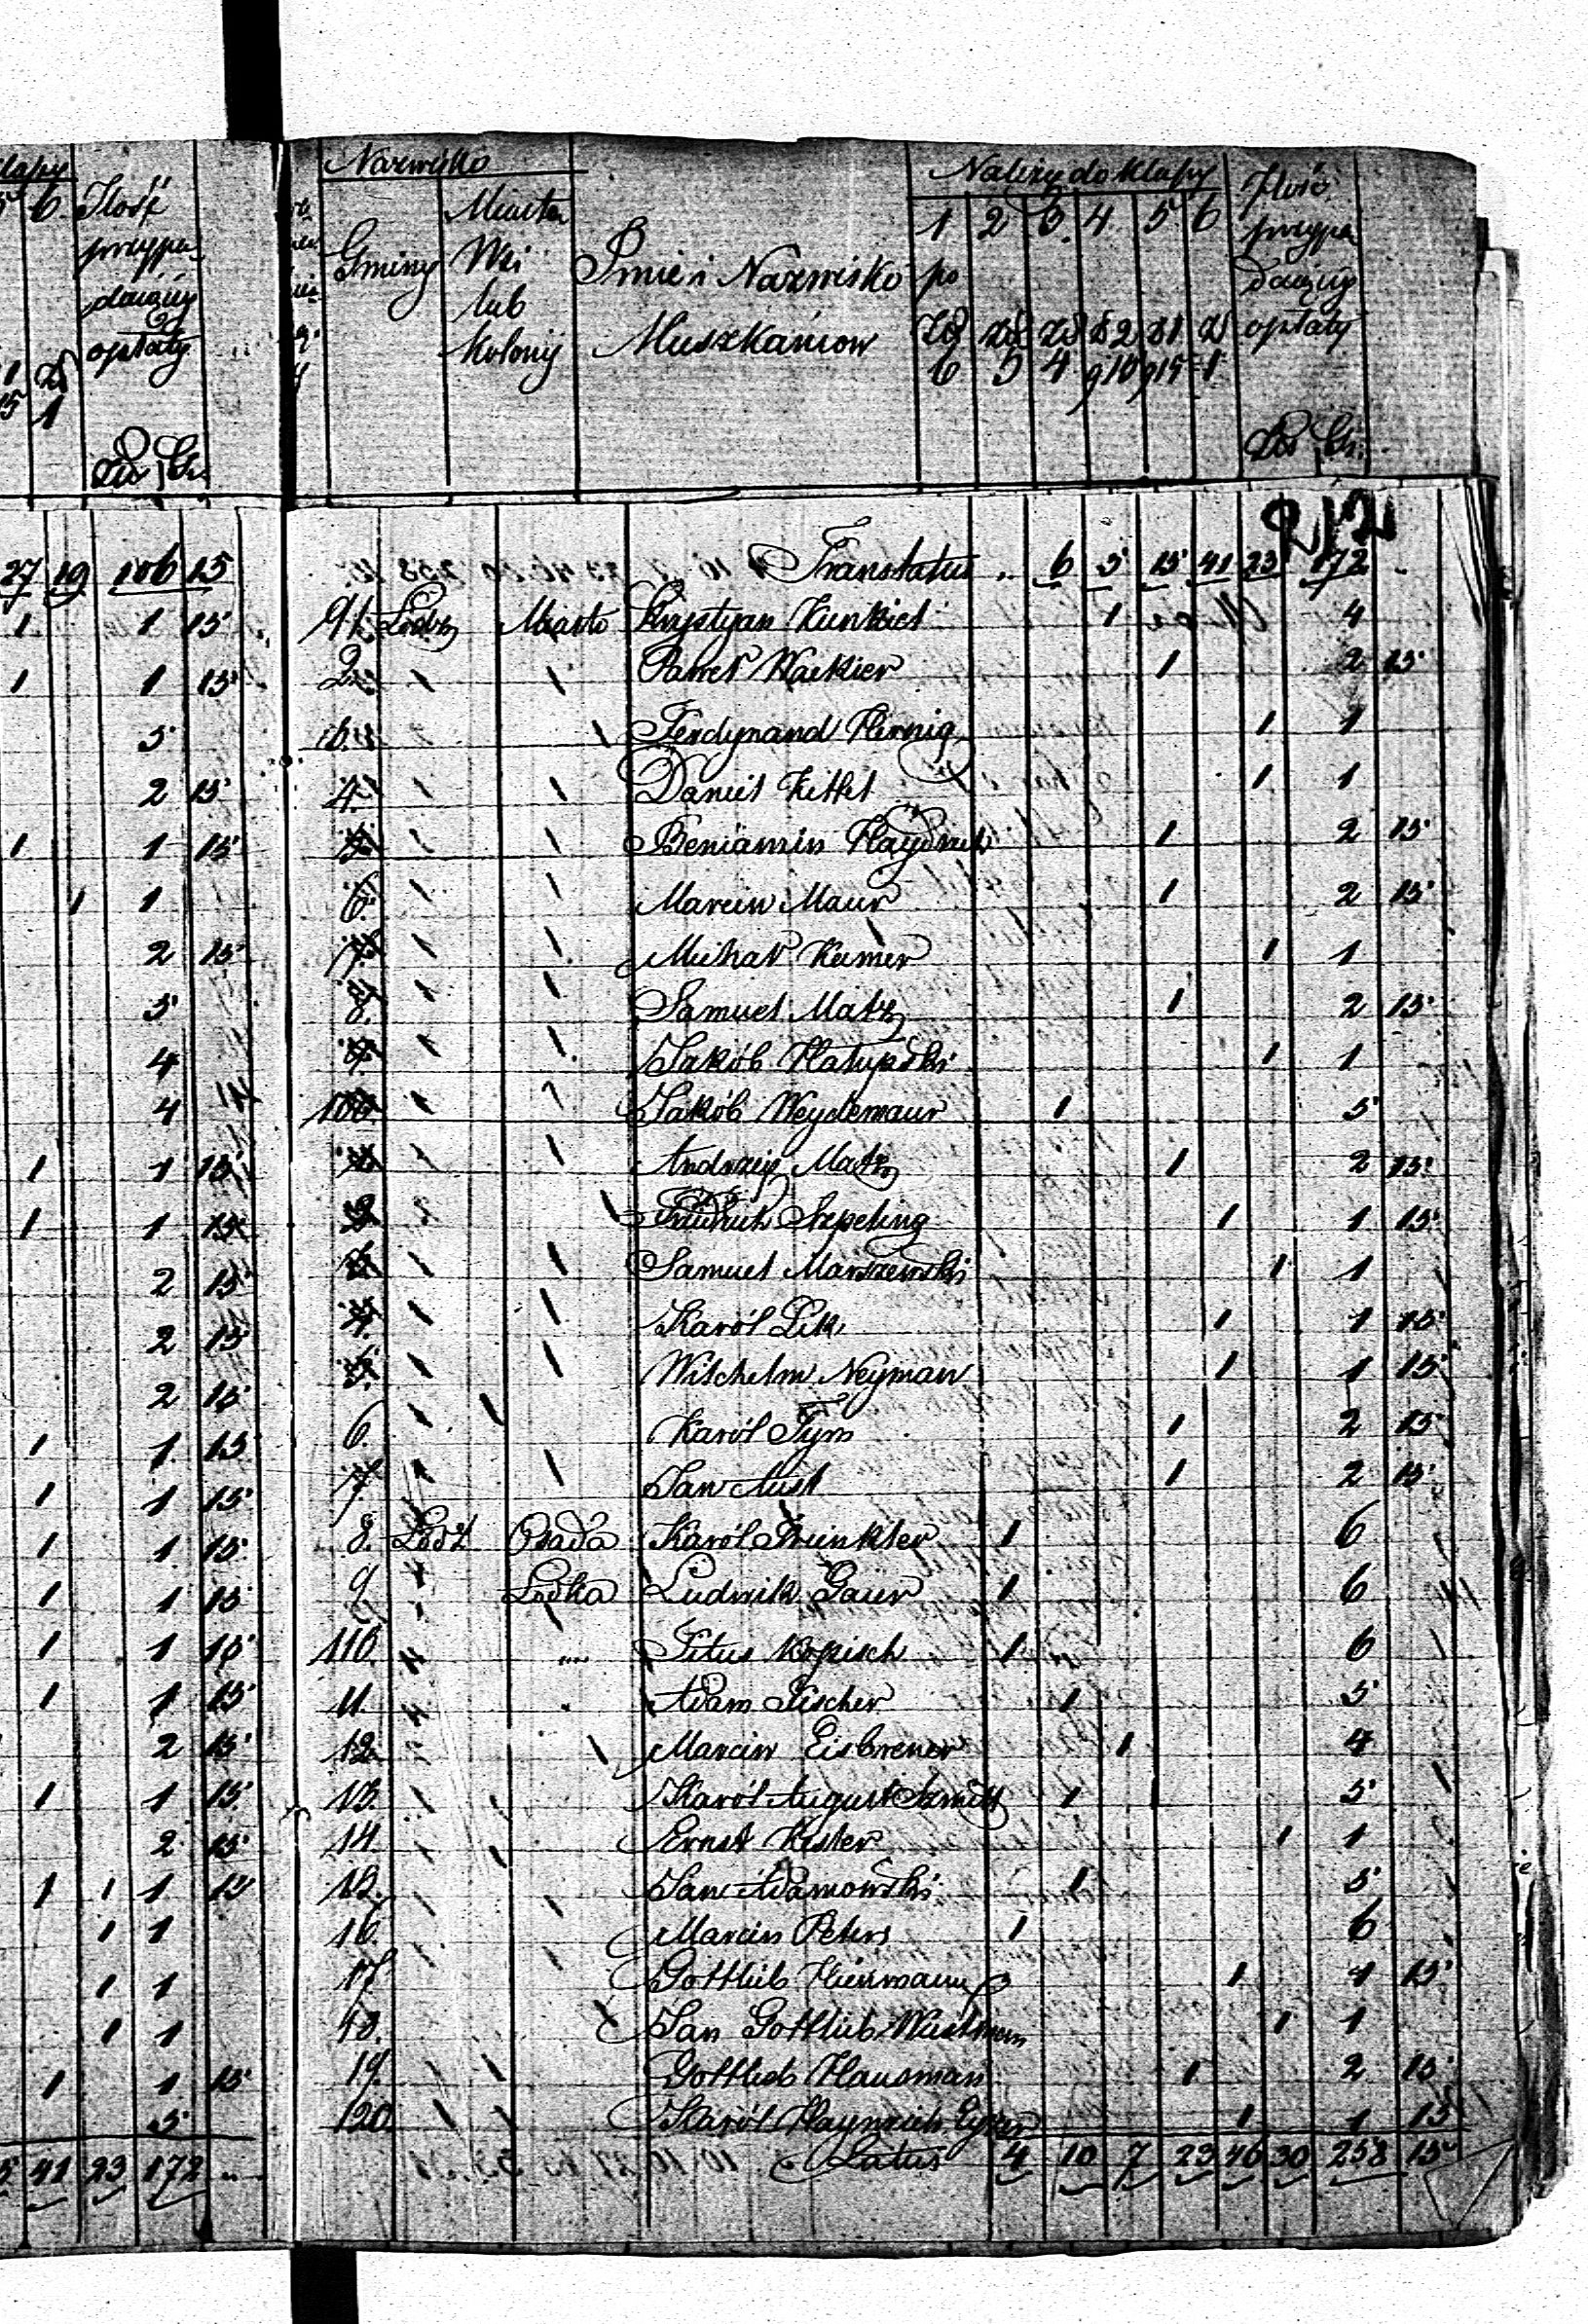 Klassy
5 6. Ilość
przypa
daiący
opłaty
1 Zł
15 1
Zło Gr.
27 19 106 15
1 1 15
1 1 15
5
2 15
1 1 15
1 1
2 15
5
4
4
1 1 15
1 1 15
2 15
2 15
2 15
1 1 15
1 1 15
1 1 15
1 1 15
1 1 15
1 1 15
2 15
1 1 15
2 15
1 1 1 15
1 1
1 1
1 1
1 1 15
5
41 23 172 "
Nazwisko
Gminy
Miasta
Wsi
lub
Kolonij
Imie i Nazwisko
Mieszkańcow
Należy do klassy
1 2 3. 4. 5 6
po
Zł Zł Zł Zł 2 Zł 1 Zł
6 5 4 g 15 g 15 1
Ilość
przypa
daiący
opłaty
Zło Gr.
212
Translatus .. 6 5 15 41 23 172 -
91 Łodz Miasto Krystyan Kunkiel 1 4
2. " " Paweł Walkier 1 2 15
" " Ferdynand Hernig 1 1
4. " " Daniel Kettel 1 1
5. " " Beniamin Haydrich 1 2 15
6. " " Marcin Maur 1 2 15
7. " " Michał Kamer 1 1
8. " " Samuel Matz 1 2 15
9. " " Jakób 1 1
100. " " Jakób Weydemaur 1 5
" " Andrzey Matz 1 2 15
2 " " Fridrich Szpeling 1 1 15
" " Samuel Marszewski 1 1
4. " " Karól Lik 1 1 15
5. " " Wilchelm Neyman 1 1 15
6. " " Karól Tym 1 2 15
7. " " Jan Aust 1 2 15
8. Łodź Osada Karól 1 6
9 " Łodka Ludwik Gaier 1 6
110. " " Titus Kopisch 1 6
11. " " Adam Fischer 1 5
12. " " Marcin Eisbrener 1 4
13. " " Karól August 1 5
14. " " Ernst Kester 1 1
15. " " Jan Adamowski 1 5
16. " " Marcin Peters 1 6
17. " " Gottlieb 1 1 15
18. " Jan Gottlieb 1 1
19. " " Gottlieb Hausman 1 2 15
120. " " Karól Haynrich 1 1 15
Latus 4 10 7 23 46 30 258 15